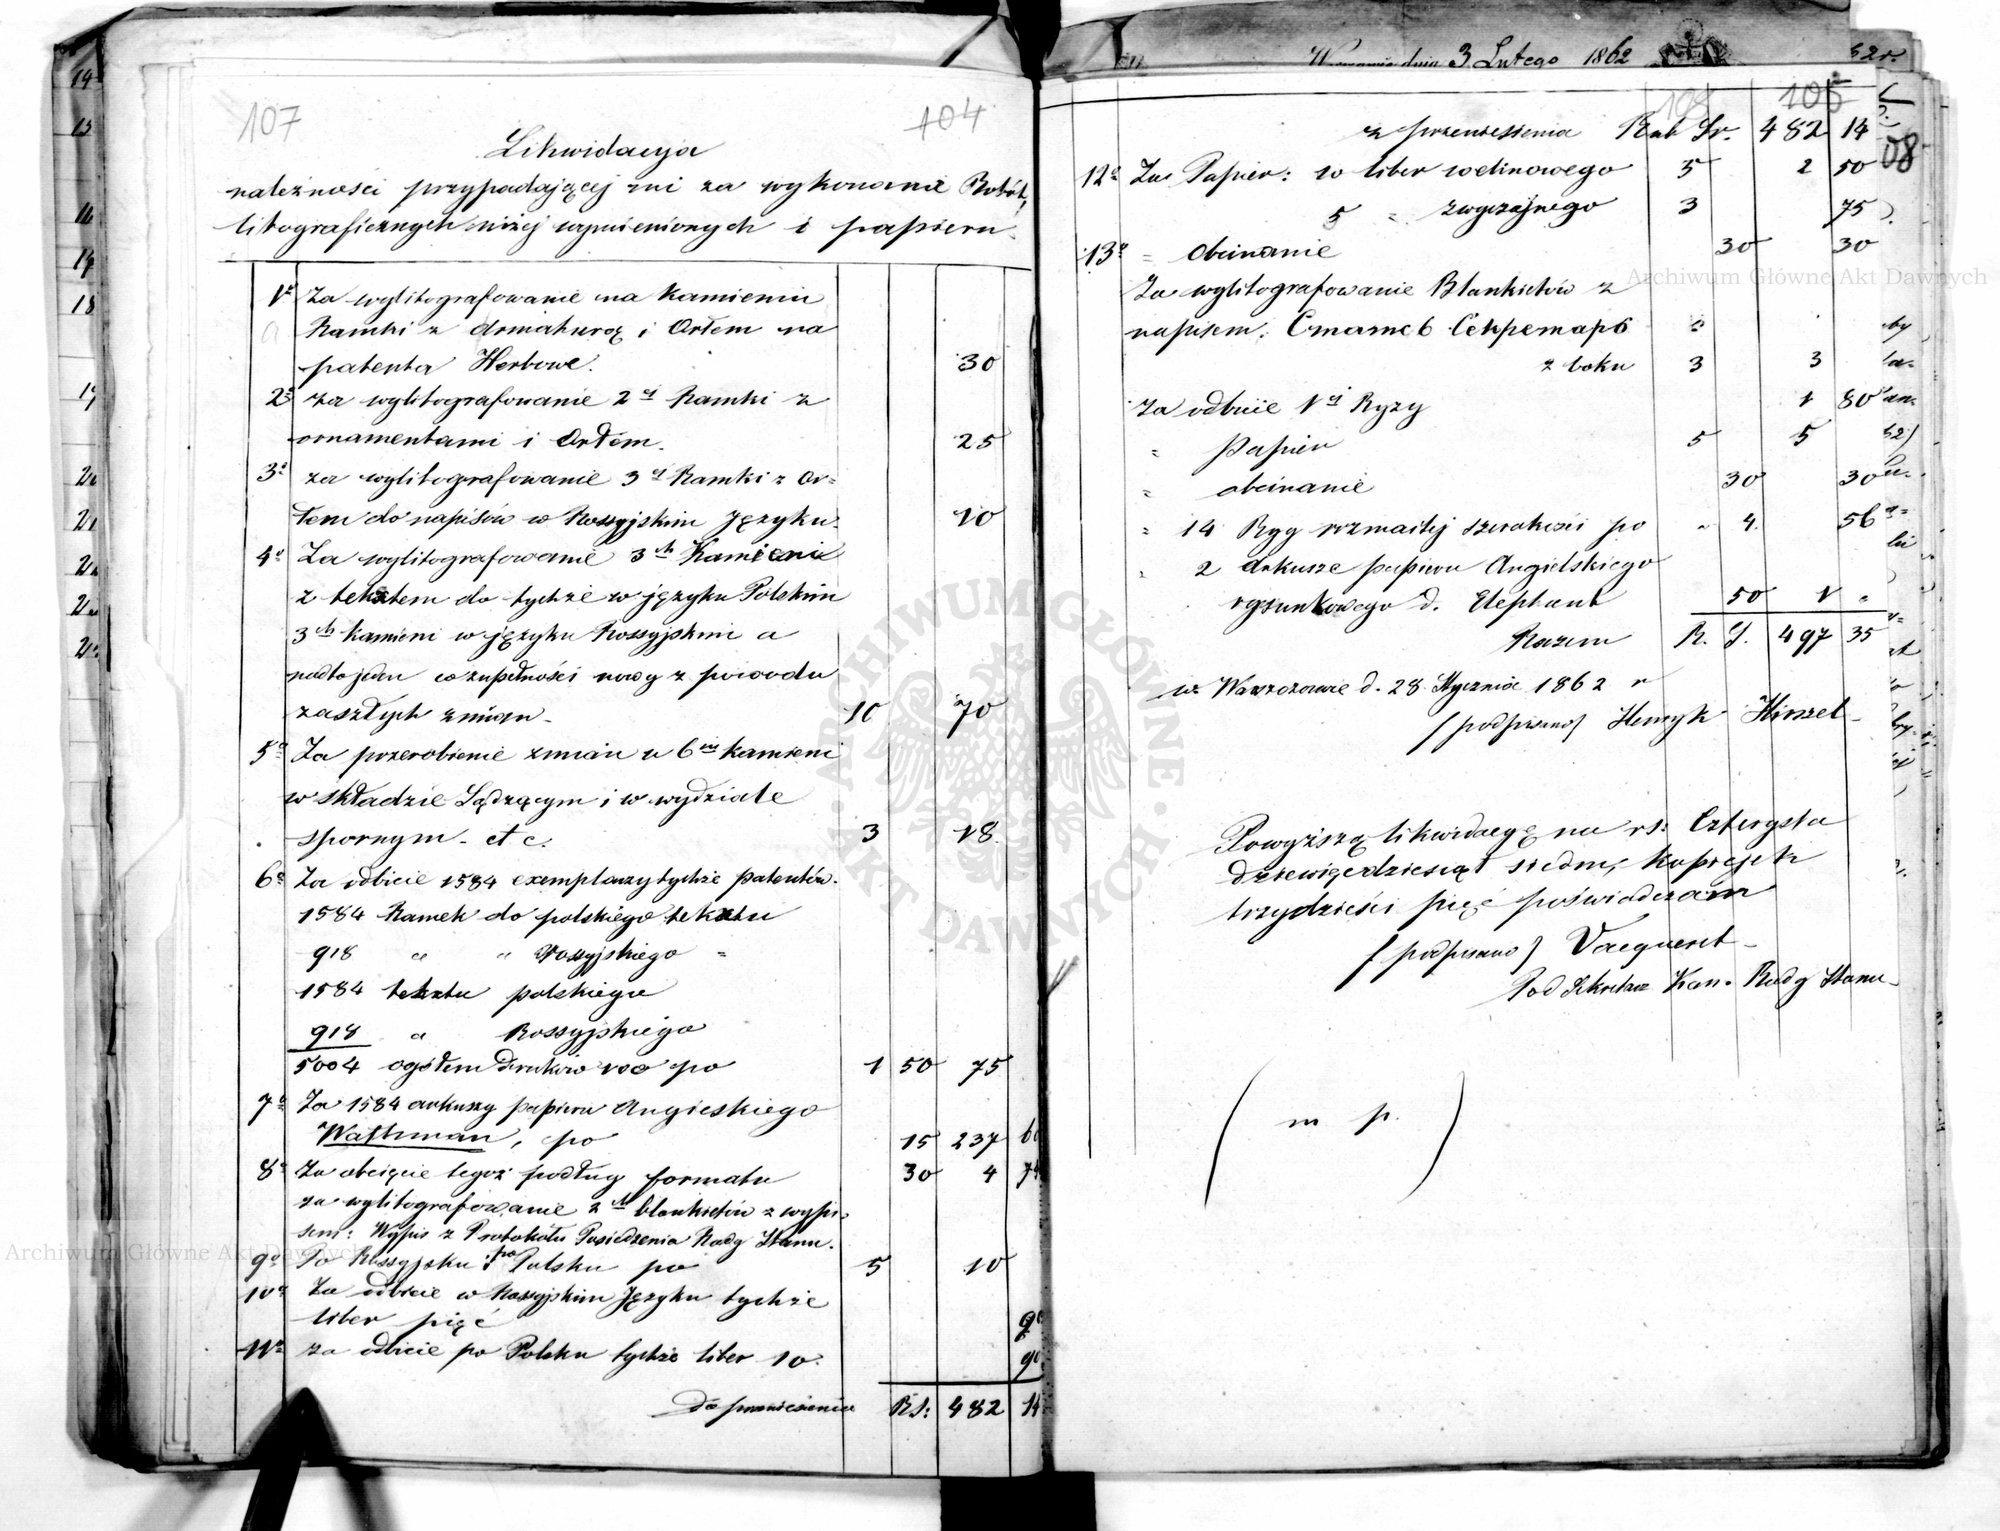 107
104
Likwidacya
należności przypadającej mi za wykonanie Robót
litograficznych niżej wymienionych i papieru.
1º Za wylitografowanie na Kamieniu
Ramki z armaturą i Orłem na
patenta Herbowe. 30
2º za wylitografowanie 2ej Ramki z
ornamentami i Orłem. 25
3º za wylitografowanie 3ej Ramki z Or=
łem do napisów w Rossyjskim Języku 10
4º Za wylitografowanie 3ch Kamieni
z tekstem do tychże w języku Polskim
3ch Kamieni w języku Rossyjskim a
nadto jeden w zupełności nowy z powodu
zaszłych zmian 10 70
5º Za przerobienie zmian u 6iu kamieni
w składzie Sądzącym i w wydziale
spornym. etc. 3 18.
6º Za odbicie 1584 exemplarzy tychże patentów.
1584 Ramek do polskiego tekstu
918 " " Rossyjskiego =
1584 tekstu polskiego
918 " Rossyjskiego
5004 ogółem druków 100 po 1 50 75
7º Za 1584 arkuszy papieru Angieskiego
Wathman, po 15 237 60
8º Za obcięcie tegoż podług formatu 30 4 74
za wylitografowanie 2ch blankietów z wypi-
sem: Wypis z Protokółu Posiedzenia Rady Stanu.
9º Po Rossyjsku i po Polsku po 5 10
10º Za odbicie w Rossyjskim Języku tychże
liber pięć 90
11º za odbicie po Polsku tychże liber 10. 90
do przeniesienia RS: 482 14
Warszawa dnia 3 Lutego 1862
105
08
z przeniesienia Rub Sr. 482 14
12º Za Papier: w liber welinowego 5 2 50
5 " zwyczajnego 3 75
13º = obcinanie 30 30
Za wylitografowanie Blankietów z
napisem: Статсъ Секретарь
z boku 3 3
Za odbicie 1ej Ryzy 1 80
= Papier 5 5
= obcinanie 30 30
= 14 Ryg rozmaitej szerokości po " 4. 56
" 2 arkusze papieru Angielskiego
rysunkowego d. Elephant 50 1 "
Razem R. S. 497 35
w Warszawie d. 28 Stycznia 1862 r
/podpisano/ Henryk Hirszel
Powyższą likwidacyę na rs: Czterysta
dziewięćdziesiąt siedm, kopiejek
trzydzieści pięć poświadczam
/podpisano/ Vacqueret
Pod Sekretarz Kan. Rady Stanu
( m p. )
Archiwum Główne Akt Dawnych
Archiwum Główne Akt Dawnych
ARCHIWUM GŁÓWNE AKT DAWNYCH